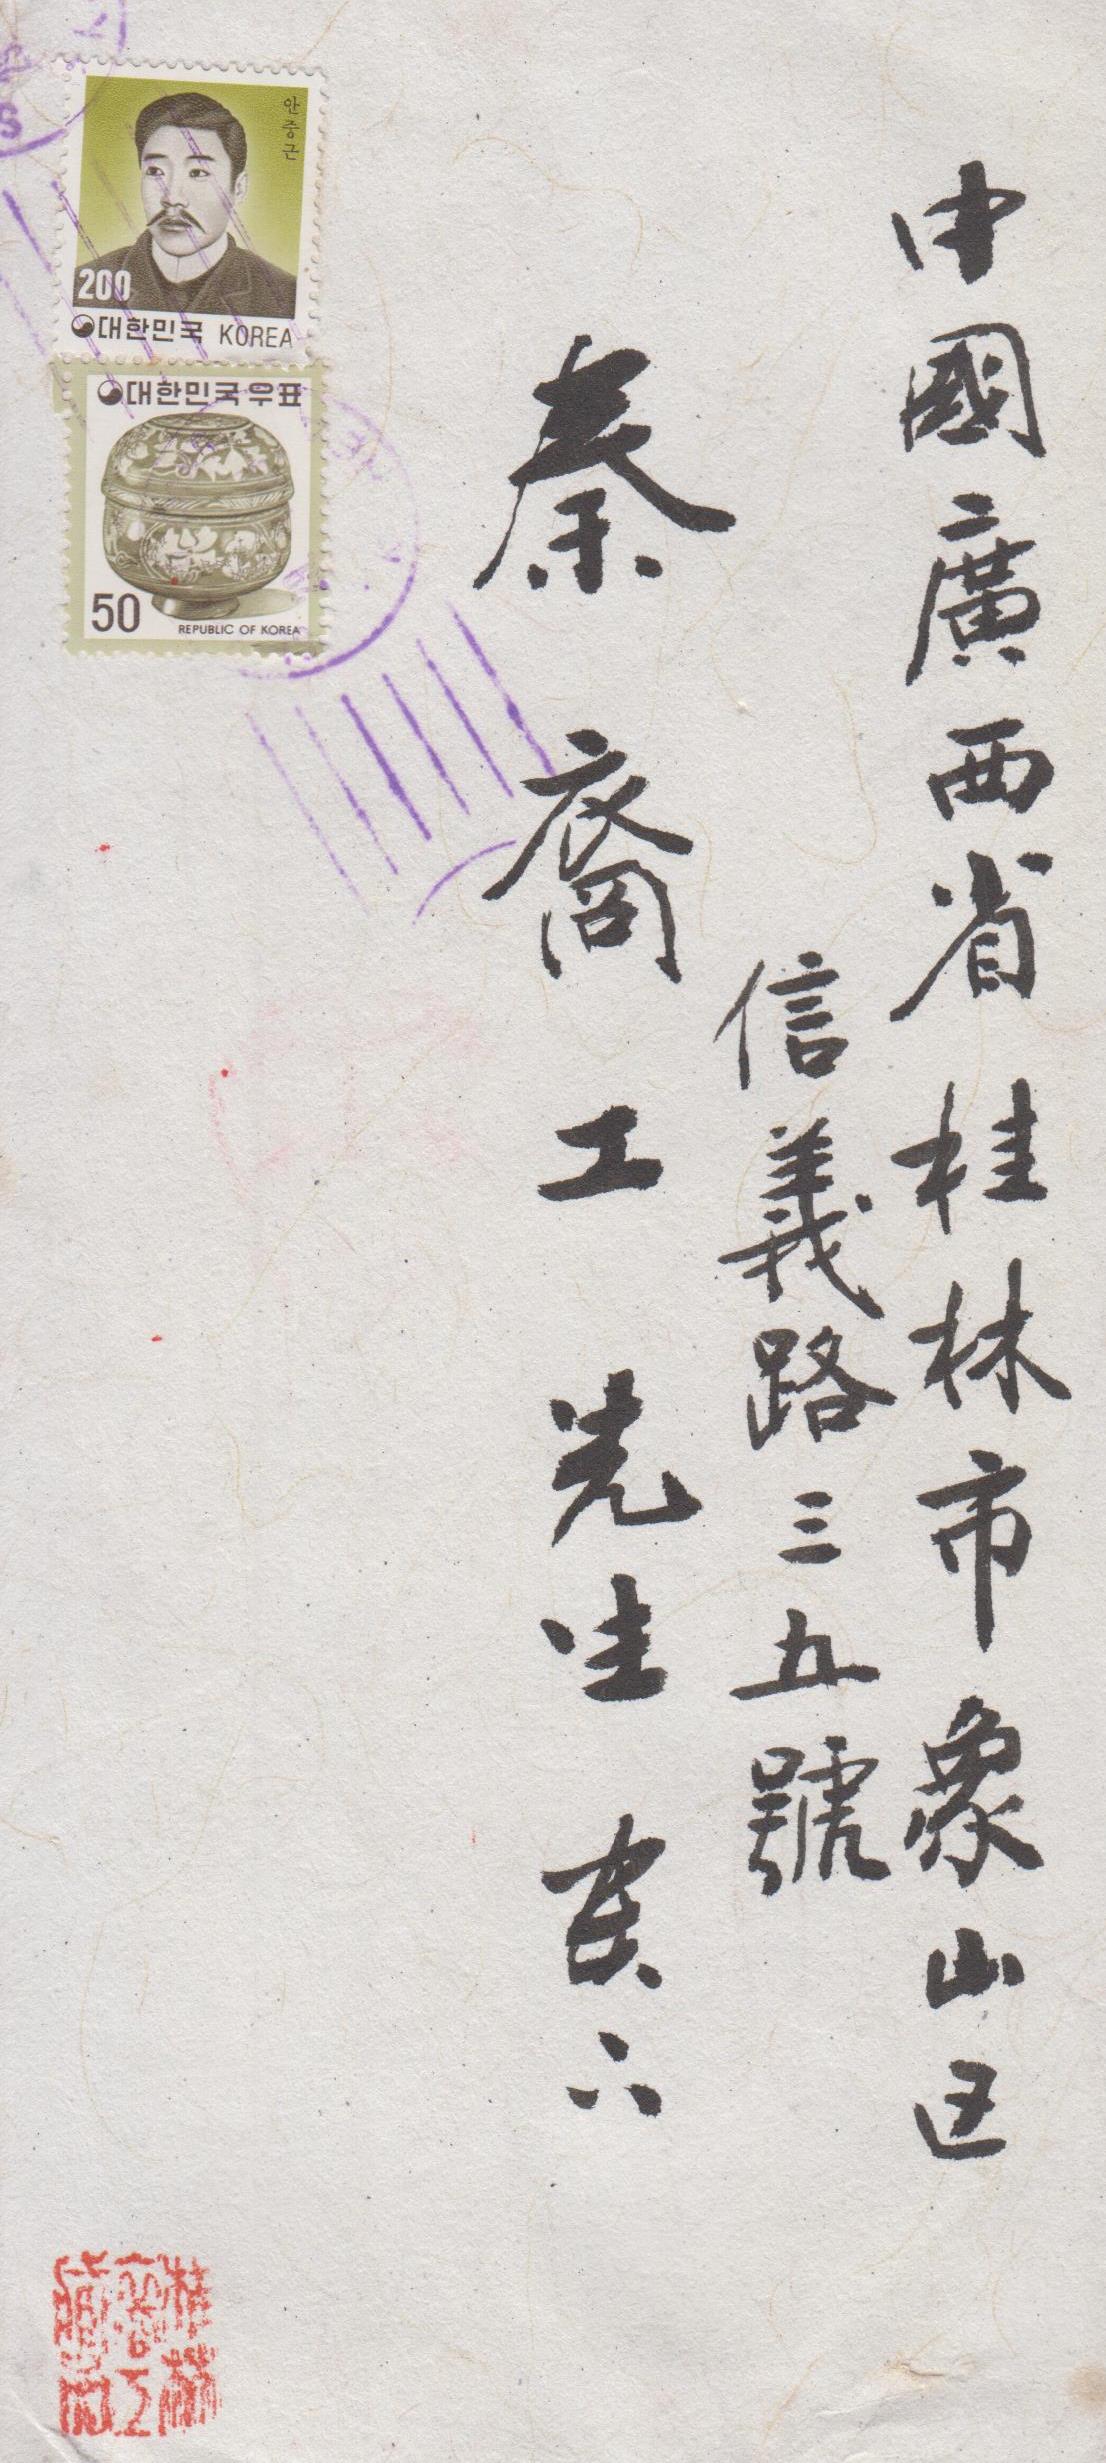 中國廣西省桂林市象山区
信義路三五號
秦裔工先生
안중근
200
대한민국 KOREA
대한민국우표
50
REPUBLIC OF KOREA